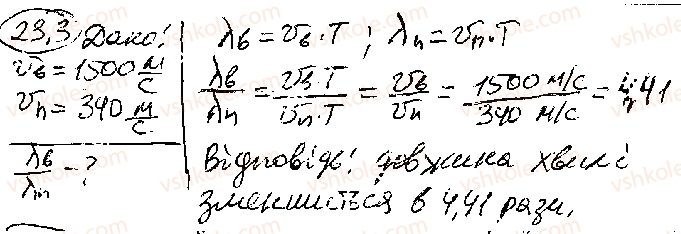 23.3 Дано:
υв = 1500 м/с
υп = 340 м/с
λв/λп - ?
λв = υв · T ; λп = υп · T
λв/λп = υв · T/υп · T = υв/υп = 1500 м/с/340 м/с = 4,41
Відповідь: довжина хвилі
зменшиться в 4,41 рази.